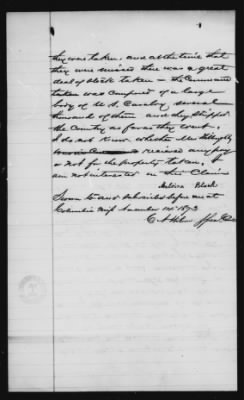 they was taken, and at the time that
they were missed there was a great
deal of stock taken — the Command
taken was composed of a large
body of U. S. Cavalry several
thousand of them and they stripped
the Country as far as they went.
I do not know whether Mr
received any pay
or not for the property taken. I
am not interested in this Claim
Black
Sworn to and subscribed before me at
Columbus Miss November 1873